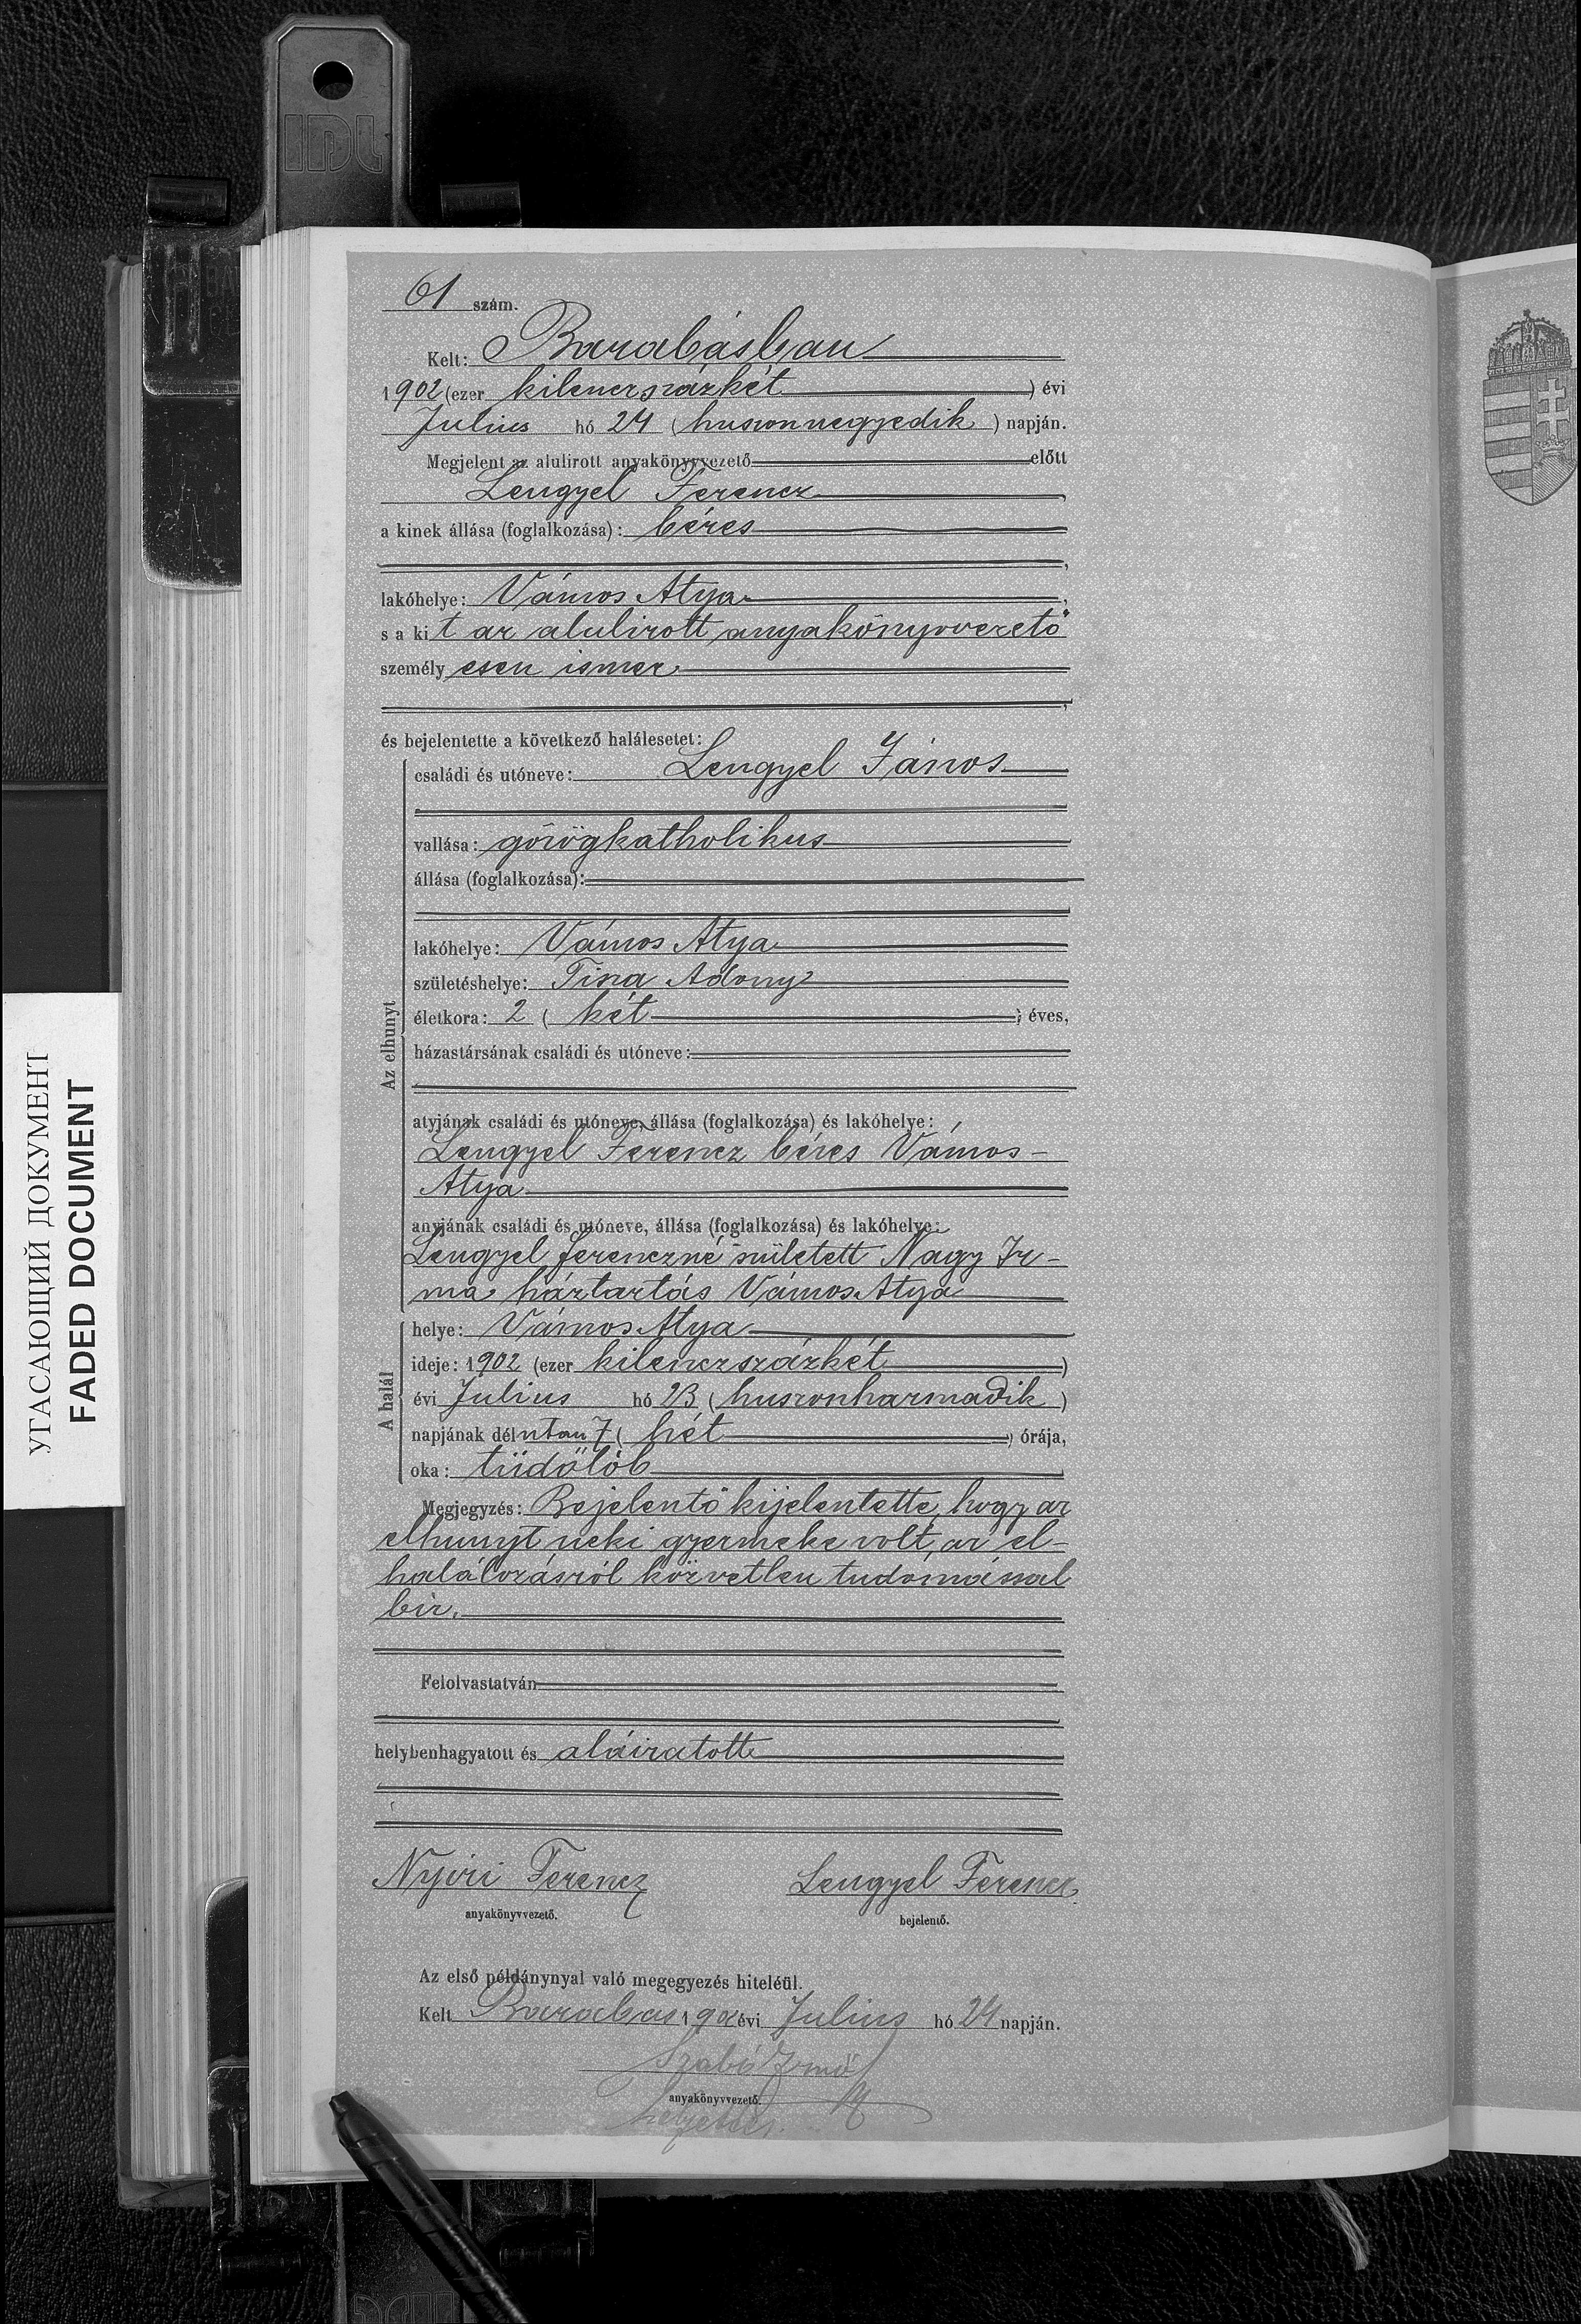 IDL
61 szám.
Kelt: Barabásban
1902 (ezer kilenczszázkét ) évi
Julius hó 24 (huszonnegyedik ) napján.
Megjelent az alulirott anyakönyvvezető előtt
Lengyel Ferencz ,
a kinek állása (foglalkozása): béres
,
lakóhelye: Vámos Atya ,
s a kit az alulirott anyakönyvvezető
személyesen ismer
,
és bejelentette a következő halálesetet:
Az elhunyt
családi és utóneve: Lengyel János
vallása: görögkatholikus
állása (foglalkozása):
lakóhelye: Vámos Atya
születéshelye: Tisza Adony
életkora: 2 ( két ) éves,
házastársának családi és utóneve:
atyjának családi és utóneve, állása (foglalkozása) és lakóhelye:
Lengyel Ferencz béres Vámos-
Atya
anyjának családi és utóneve, állása (foglalkozása) és lakóhelye:
Lengyel Ferenczné született Nagy Ir-
ma háztartás Vámos Atya
A halál
helye: Vámos Atya
ideje: 1902 (ezer kilenczszázkét )
évi Julius hó 23 (huszonharmadik )
napjának délután 7 ( hét ) órája,
oka: tüdőlób
Megjegyzés: Bejelentő kijelentette, hogy az
elhunyt neki gyermeke volt, az el-
halálozásról közvetlen tudomással
bir.
Felolvastatván
helybenhagyatott és aláiratott
Nyiri Ferencz Lengyel Ferencz
anyakönyvvezető. bejelentő.
Az első példánynyal való megegyezés hiteléül.
Kelt Barabas 1902 évi Julius hó 24 napján.
Szabó
anyakönyvvezető.
helyettes.
УГАСАЮЩИЙ ДОКУМЕНТ
FADED DOCUMENT